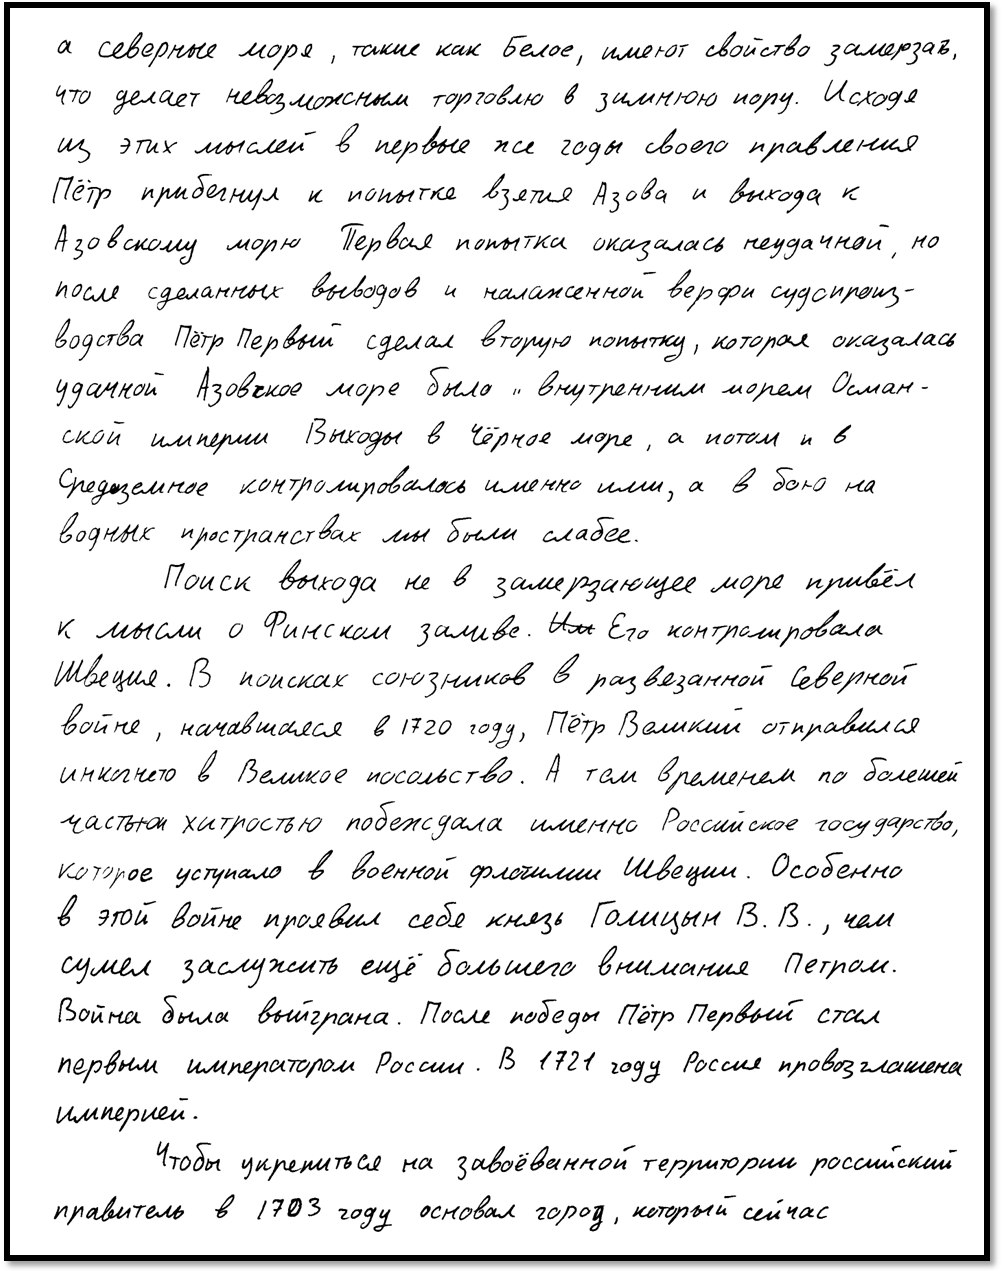 а северные моря, такие как Белое, имеют свойство замерзать,
что делает невозможным торговлю в зимнюю пору. Исходя
из этих мыслей в первые же годы своего правления
Пётр прибегнул к попытке взятия Азова и выхода к
Азовскому морю Первая попытка оказалась неудачной, но
после сделанных выводов и налаженной верфи судопроиз-
водства Пётр Первый сделал вторую попытку, которая оказалась
удачной Азовское море было " внутренним морем Осман-
ской империи Выходы в Чёрное море, а потом и в
Средеземное контролировалось именно ими, а в бою на
водных пространствах мы были слабее.
Поиск выхода не в замерзающее море привёл
к мысли о Финском заливе. Им Его контролировала
Швеция. В поисках союзников в развязанной Северной
войне, начавшаяся в 1720 году, Пётр Великий отправился
инкогнето в Великое посольство. А тем временем по болешей
частьюи хитростью побеждала именно Российское государство,
которое уступало в военной флотилии Швеции. Особенно
в этой войне проявил себя князь Голицын В. В., чем
сумел заслужить ещё большего внимания Петром.
Война была выйграна. После победы Пётр Первый стал
первым императором России. В 1721 году Россия провозглашена
империей.
Чтобы укрепиться на завоёванной территории российский
правитель в 1703 году основал город, который сейчас